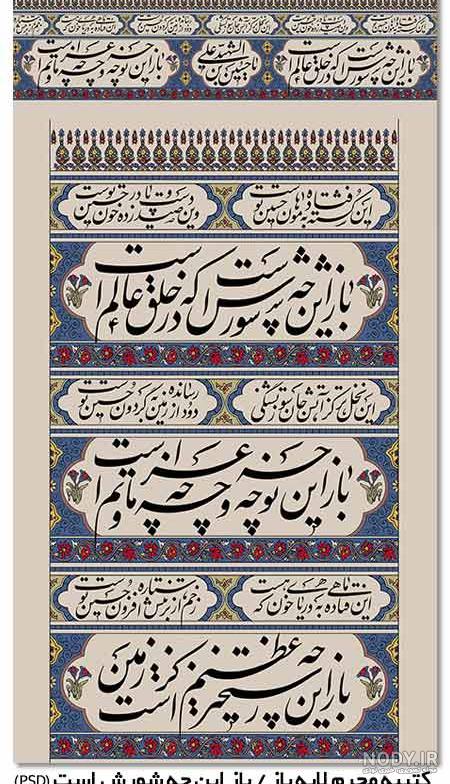 باز این چه شورش است که در خلق عالم است یا حسین بن علی الشهید باز این چه نوحه و چه عزا و چه ماتم است
این کشته فتاده به هامون حسین توست وین صید دست و پا زده در خون حسین توست
باز این چه شورش است که در خلق عالم است
این نخل تر کز آتش جان سوز تشنگی دود از زمین رسانده به گردون حسین توست
باز این چه نوحه و چه عزا و چه ماتم است
این ماهی فتاده به دریای خون که هست زخم از ستاره بر تنش افزون حسین توست
باز این چه رستخیز عظیم است کز زمین
NODY.IR
کتیبه محرم لایه باز / باز این چه شورش است (PSD)